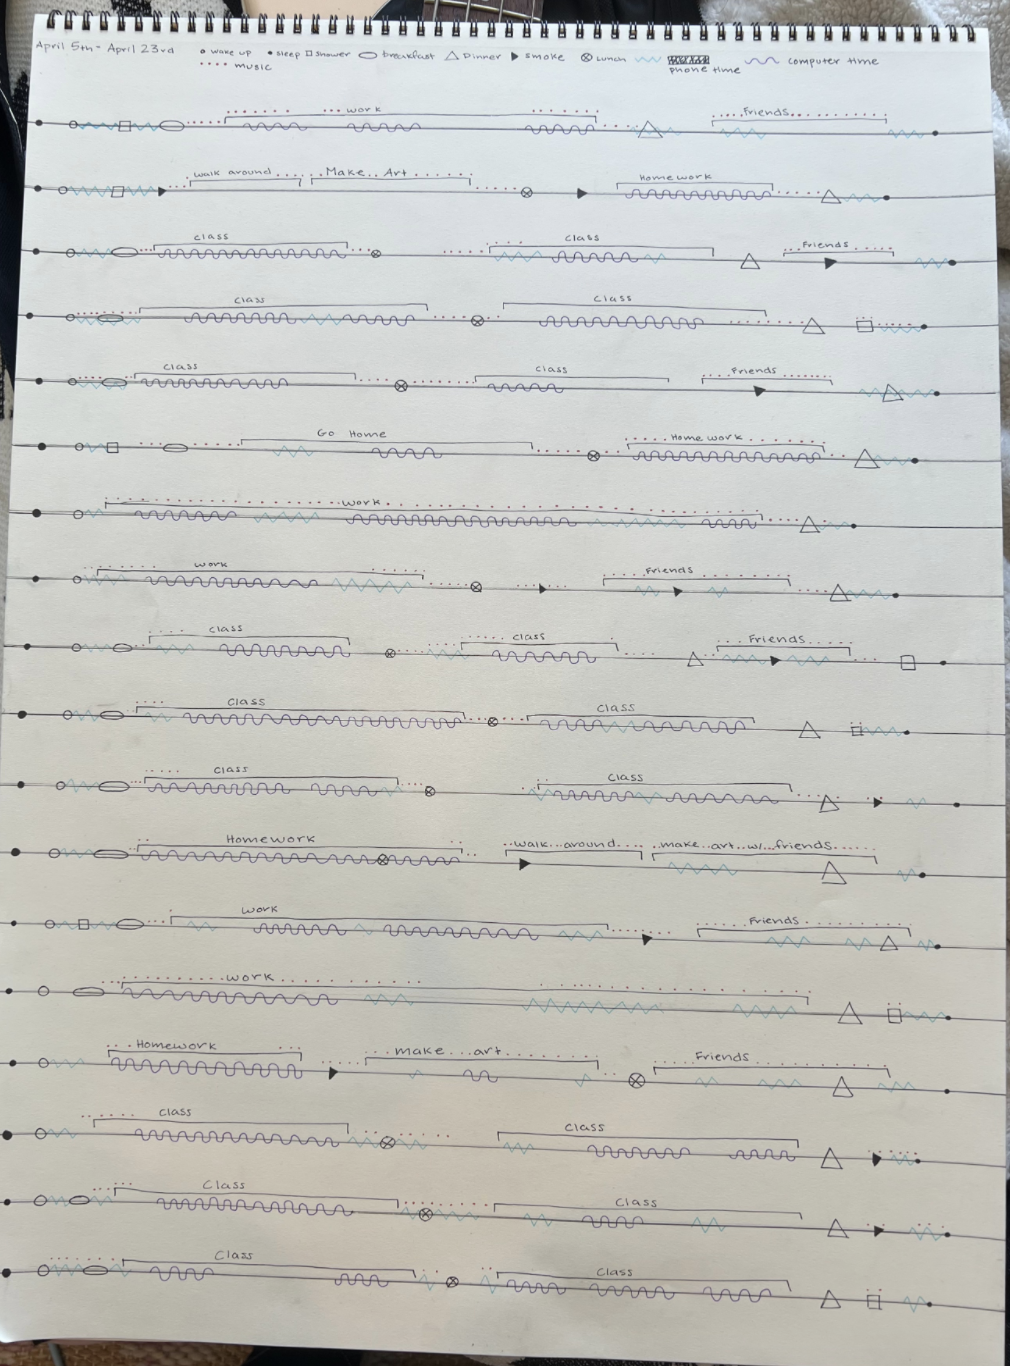 April 5th - April 23rd
wake up sleep shower breakfast Dinner smoke Lunch phone time computer time
music
work Friends
walk around Make Art Homework
class class Friends
class class
class class Friends
Go Home Home work
work
work Friends
class class Friends
class class
class class
Homework walk around make art w/ friends
work Friends
work
Homework make art Friends
class class
class class
class class